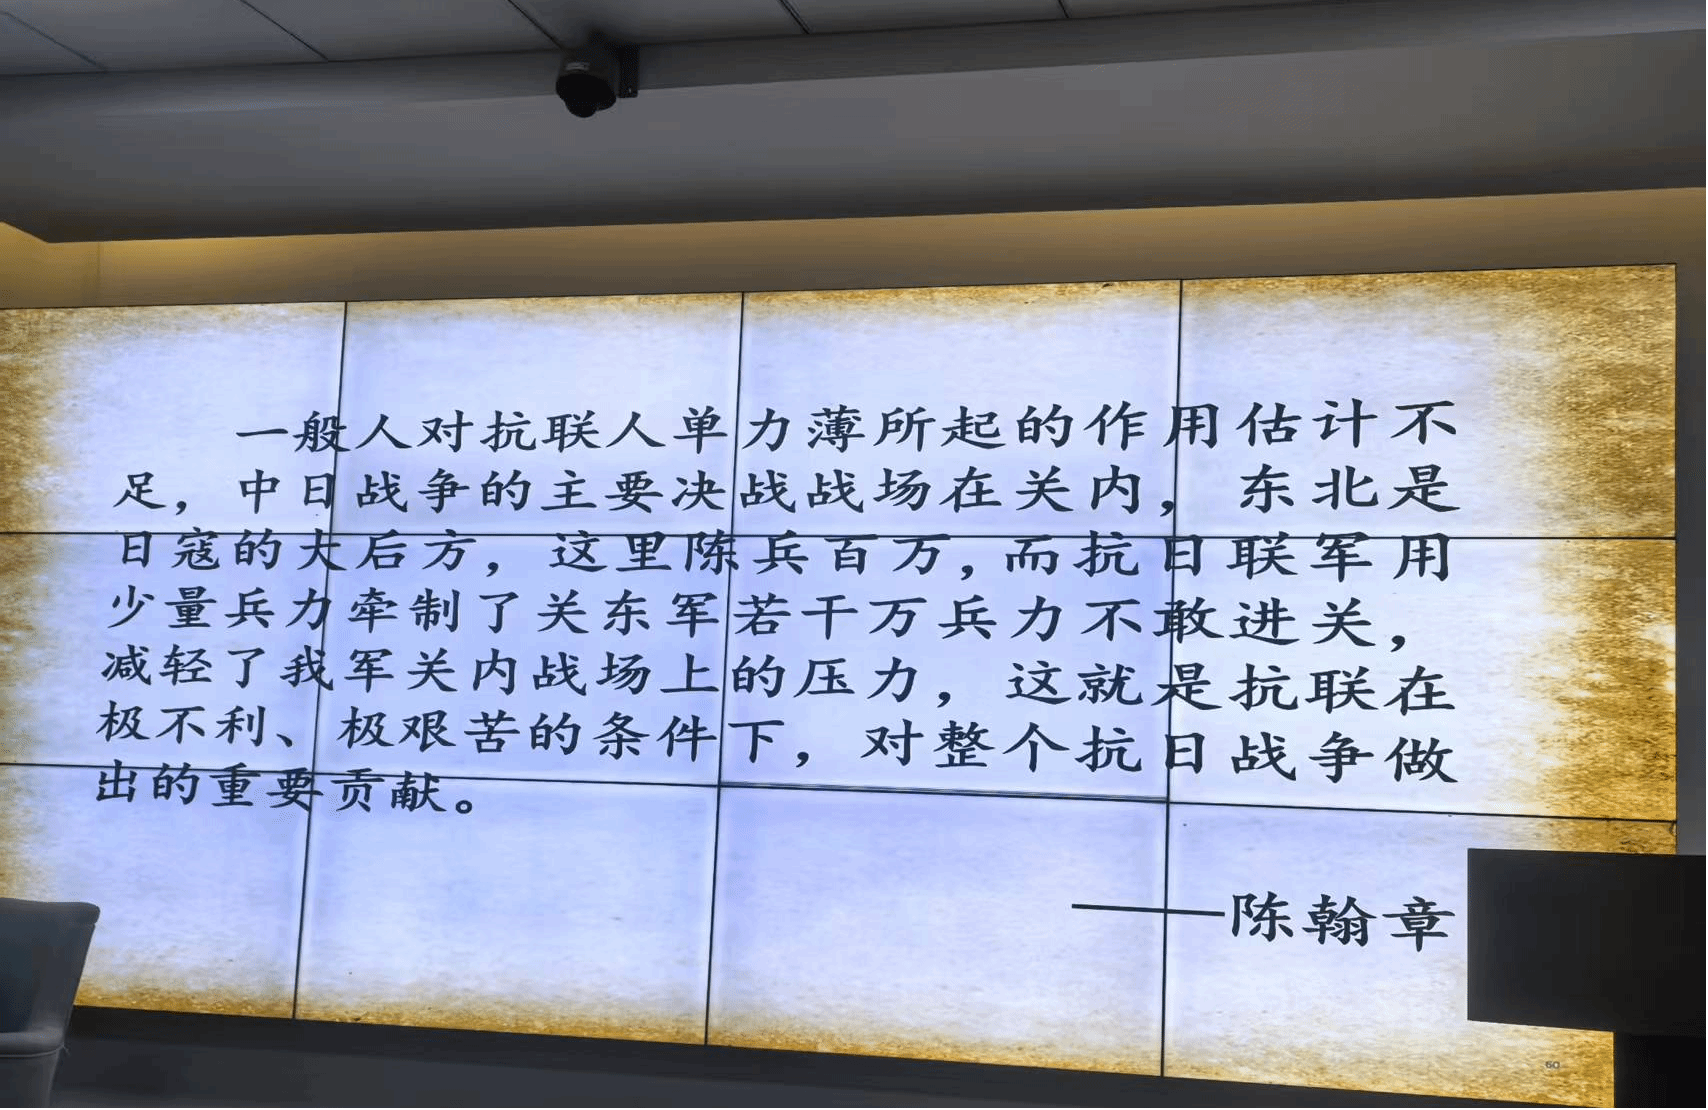 一般人对抗联人单力薄所起的作用估计不
足，中日战争的主要决战战场在关内，东北是
日寇的大后方，这里陈兵百万，而抗日联军用
少量兵力牵制了关东军若干万兵力不敢进关，
减轻了我军关内战场上的压力，这就是抗联在
极不利、极艰苦的条件下，对整个抗日战争做
出的重要贡献。
——陈翰章
60